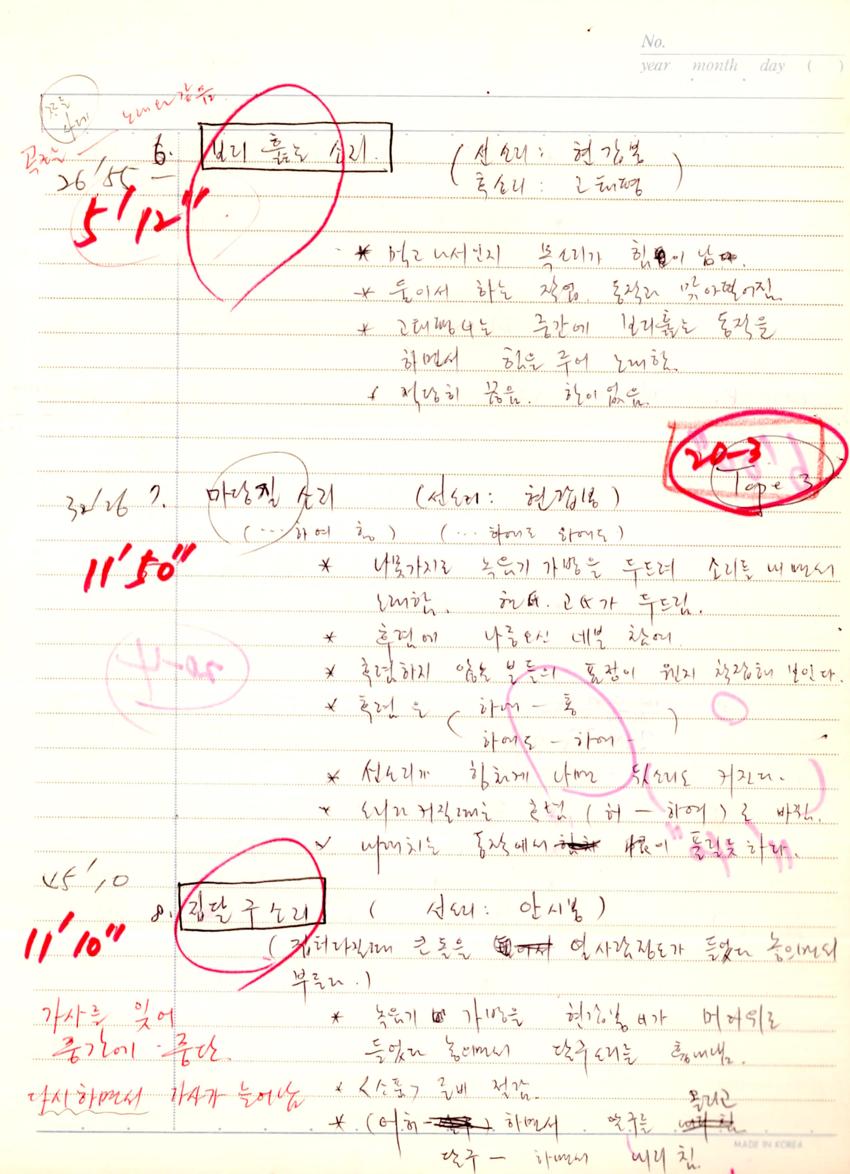 No.
year month day ( )
노래가 같음
26'55 6. 보리 훑는 소리. (선소리: 현갑봉
훗소리: 고태평)
5'12"
* 먹고 나서인지 목소리가 힘이 남.
* 둘이서 하는 작업. 동작과 맞아떨어짐.
* 고태평씨는 중간에 보리훑는 동작을
하면서 힘을 주어 노래함.
적당히 끊음. 한이 없음.
20-3
Tape 3
7. 마당질 소리 (선소리: 현갑봉)
(…하여 홍) (…하에도 와에도)
11'50"
* 나뭇가지로 녹음기 가방을 두드려 소리를 내면서
노래함. 현씨. 고씨가 두드림.
* 후렴에 나중오신 네분 참여.
* 훈련하지 않는 분들의 표정이 왠지 착잡해 보인다.
* 후렴을 (하에 - 홍
하에도 - 하에 -)
* 선소리가 힘차게 나면 뒷소리도 커진다.
* 소리가 커질때는 후렴 (허 - 하에)로 바뀜.
내려치는 동작에서 恨이 풀릴듯 하다.
45',0
8. 집달구소리 ( 선소리: 안시봉)
11'10"
(집터다질때 큰돌을 열사람정도가 들었다 놓으면서
부른다.)
가사를 잊어
중간에 중단.
다시하면서 가사가 늘어남
* 녹음기 가방을 현갑봉씨가 머리위로
들었다 놓으면서 달구소리를 흉내냄.
* <소품> 준비 절감.
올리고
* (어허- ) 하면서 달구를
달구 - 하면서 내리침.
MADE IN KOREA